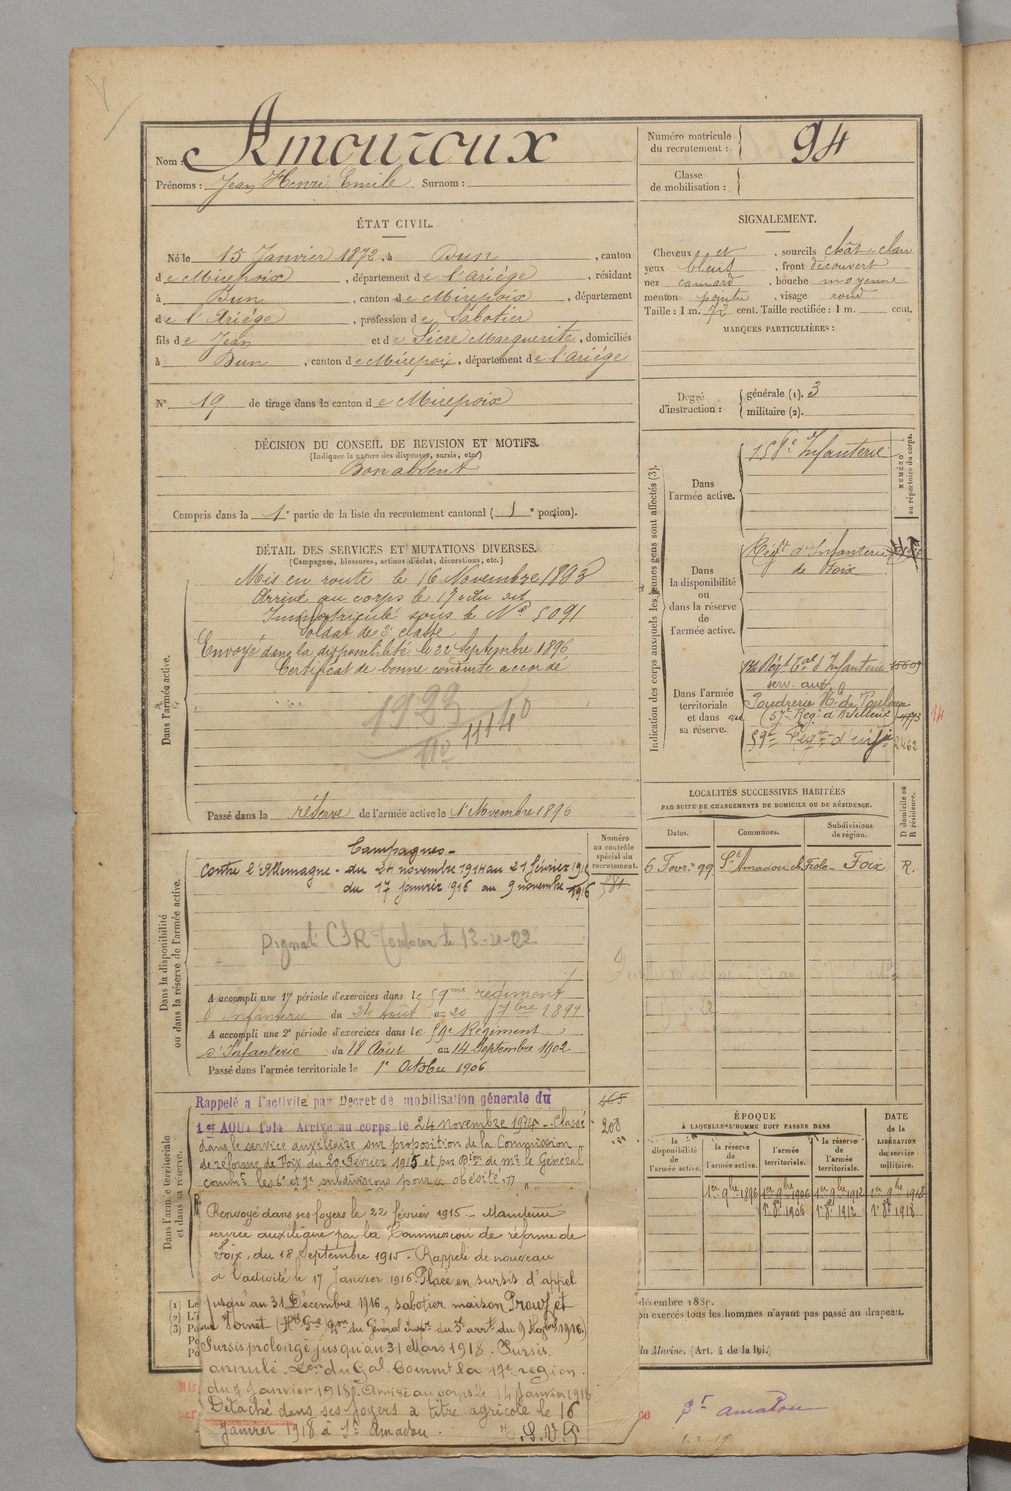 Nom : Amouroux
Prénoms : Jean Henri Emile Surnom :
Numéro matricule du recrutement : 94
Classe de mobilisation :
ÉTAT CIVIL.
Né le 15 Janvier 1872, à Dun, canton
de Mirepoix, département de l'Ariége, résidant
à Dun, canton de Mirepoix, département
de l'Ariége, profession de Sabotier
fils de Jean et de Sicre Marguerite, domiciliés
à Dun, canton de Mirepoix, département de l'ariége
N° 19 de tirage dans le canton de Mirepoix
DÉCISION DU CONSEIL DE REVISION ET MOTIFS.
(Indiquer la nature des dispenses, sursis, etc.)
Bon absent
Compris dans la 1e partie de la liste du recrutement cantonal (1e portion).
DÉTAIL DES SERVICES ET MUTATIONS DIVERSES.
(Campagnes, blessures, actions d'éclat, décorations, etc.)
Dans l'armée active.
Mis en route le 16 Novembre 1893
Arrivé au corps le 17 du dit
Immatriculé sous le N° 5091
Soldat de 2e classe
Envoyé dans la disponibilité le 22 Septembre 1896
Certificat de bonne conduite accordé
1923
110
11140
Passé dans la réserve de l'armée active le 1er Novembre 1896
Dans la disponibilité ou dans la réserve de l'armée active.
Numéro au contrôle spécial du recrutement.
Campagnes
Contre l'Allemagne - du 24 novembre 1914 au 21 février 1915
du 17 janvier 1916 au 9 novembre 1916
581
A accompli une 1e période d'exercices dans le 59me régiment
d'Infanterie du 24 août au 20 7bre 1899
A accompli une 2e période d'exercices dans le 59e Régiment
d'Infanterie du 18 Août au 14 Septembre 1902
Passé dans l'armée territoriale le 1er Octobre 1906
Dans l'armée territoriale et dans sa réserve.
468
208
Rappelé à l'activité par Décret de mobilisation générale du
1er AOUT 1914 Arrivé au corps le 24 novembre 1914 - Classé
dans le service auxiliaire sur proposition de la Commission
de réforme de Foix du 20 Février 1915 et par Don de Mr le Général
commt les 6e et 7e subdivisions pour « obésité »
Renvoyé dans ses foyers le 22 février 1915 - Maintenu
service auxiliaire par la Commission de réforme de
Foix, du 18 Septembre 1915 - Rappelé de nouveau
à l'activité le 17 Janvier 1916. Placé en sursis d'appel
jusqu'au 31 Décembre 1916, sabotier maison
Sursis prolongé jusqu'au 31 Mars 1918. Sursis
annulé. du Gal. Commt la 17e région.
du 4 Janvier 1918. Arrivé au corps le 14 Janvier 1918
Détaché dans ses foyers à titre agricole le 16
Janvier 1918 à St Amadou.
SIGNALEMENT.
Cheveux et , sourcils chât clair
yeux bleus, front découvert
nez camard, bouche moyenne
menton pointu, visage rond
Taille : 1 m. 72 cent. Taille rectifiée : 1 m. cent.
MARQUES PARTICULIÈRES :
Degré d'instruction : générale (1). 3
militaire (2).
Indication des corps auxquels les jeunes gens sont affectés (3).
NUMÉRO au répertoire du corps.
Dans l'armée active. 158e Infanterie
Dans la disponibilité ou dans la réserve de l'armée active.
Régt d'Infanterie
de Foix
Dans l'armée territoriale et dans sa réserve.
Régt Tal d'Infanterie
serv. aux.
Poudrerie Nle de Toulouse
(57e Regt d'Artillerie)
59e Régt d'infie 2462
14
LOCALITÉS SUCCESSIVES HABITÉES
PAR SUITE DE CHANGEMENTS DE DOMICILE OU DE RÉSIDENCE.
Dates. Communes. Subdivisions de région. D domicile ou R résidence.
6 Fevr. 99 St Amadou Foix R.
ÉPOQUE
À LAQUELLE L'HOMME DOIT PASSER DANS
la disponibilité de l'armée active. la réserve de l'armée active. l'armée territoriale. la réserve de l'armée territoriale.
DATE de la LIBÉRATION du service militaire.
1er 9bre 1896 1er 9bre 1906 1er 9bre 1912 1er 9bre 1918
1er 8bre 1906 1er 8bre 1912 1er 8bre 1918
décembre 1889.
on exercés tous les hommes n'ayant pas passé au drapeau.
la Marine. (Art. 4 de la loi.)
St amadou